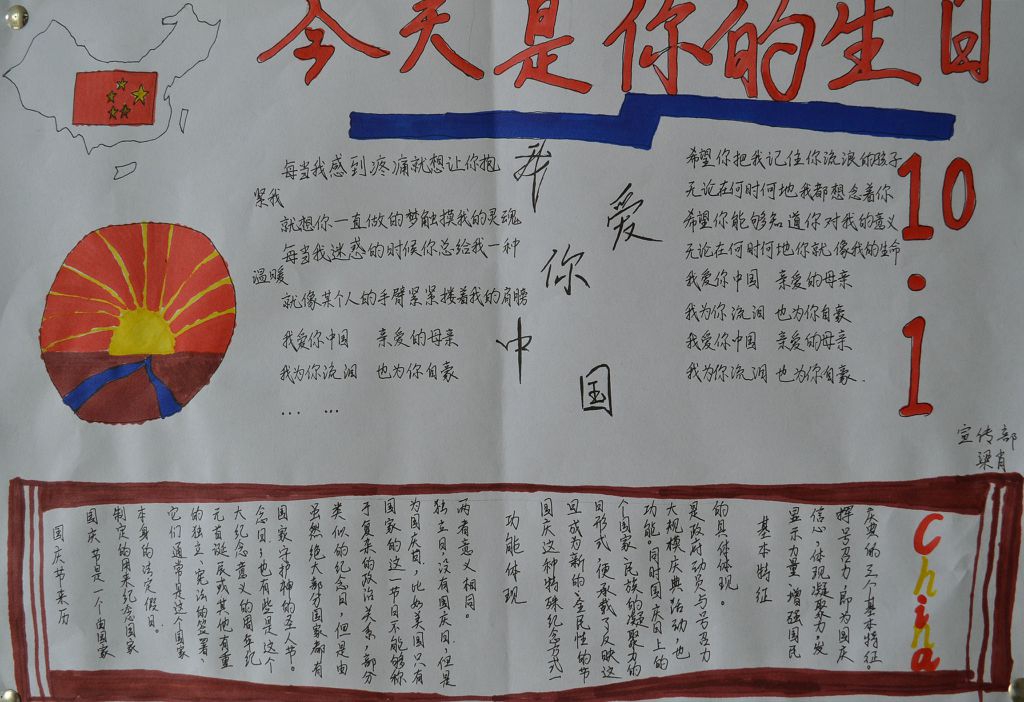 今天是你的生日
每当我感到疼痛就想让你抱
紧我
就想你一直做的梦触摸我的灵魂
每当我迷惑的时候你总给我一种
温暖
就像某个人的手臂紧紧搂着我的肩膀
我爱你中国 亲爱的母亲
我为你流泪 也为你自豪
... ...
我
爱
你
中
国
希望你把我记住你流浪的孩子
无论在何时何地我都想念着你
希望你能够知道你对我的意义
无论在何时何地你就像我的生命
我爱你中国 亲爱的母亲
我为你流泪 也为你自豪
我爱你中国 亲爱的母亲
我为你流泪 也为你自豪.
10·1
宣传部
梁肖
国庆节来历
国庆节是一个由国家
制定的用来纪念国家
本身的法定假日。
它们通常是这个国家
的独立、宪法的签署、
元首诞辰或其他有重
大纪念意义的周年纪
念日;也有些是这个
国家守护神的圣人节。
虽然绝大部分国家都有
类似的纪念日,但是由
于复杂的政治关系,部分
国家的这一节日不能够称
为国庆日,比如美国只有
独立日,没有国庆日,但是
两者意义相同。
功能体现
国庆这种特殊纪念方式一
旦成为新的、全民性的节
日形式,便承载了反映这
个国家、民族的凝聚力的
功能。同时国庆日上的
大规模庆典活动,也
是政府动员与号召力
的具体体现。
基本特征
显示力量、增强国民
信心,体现凝聚力,发
挥号召力,即为国庆
庆典的三个基本特征。
China